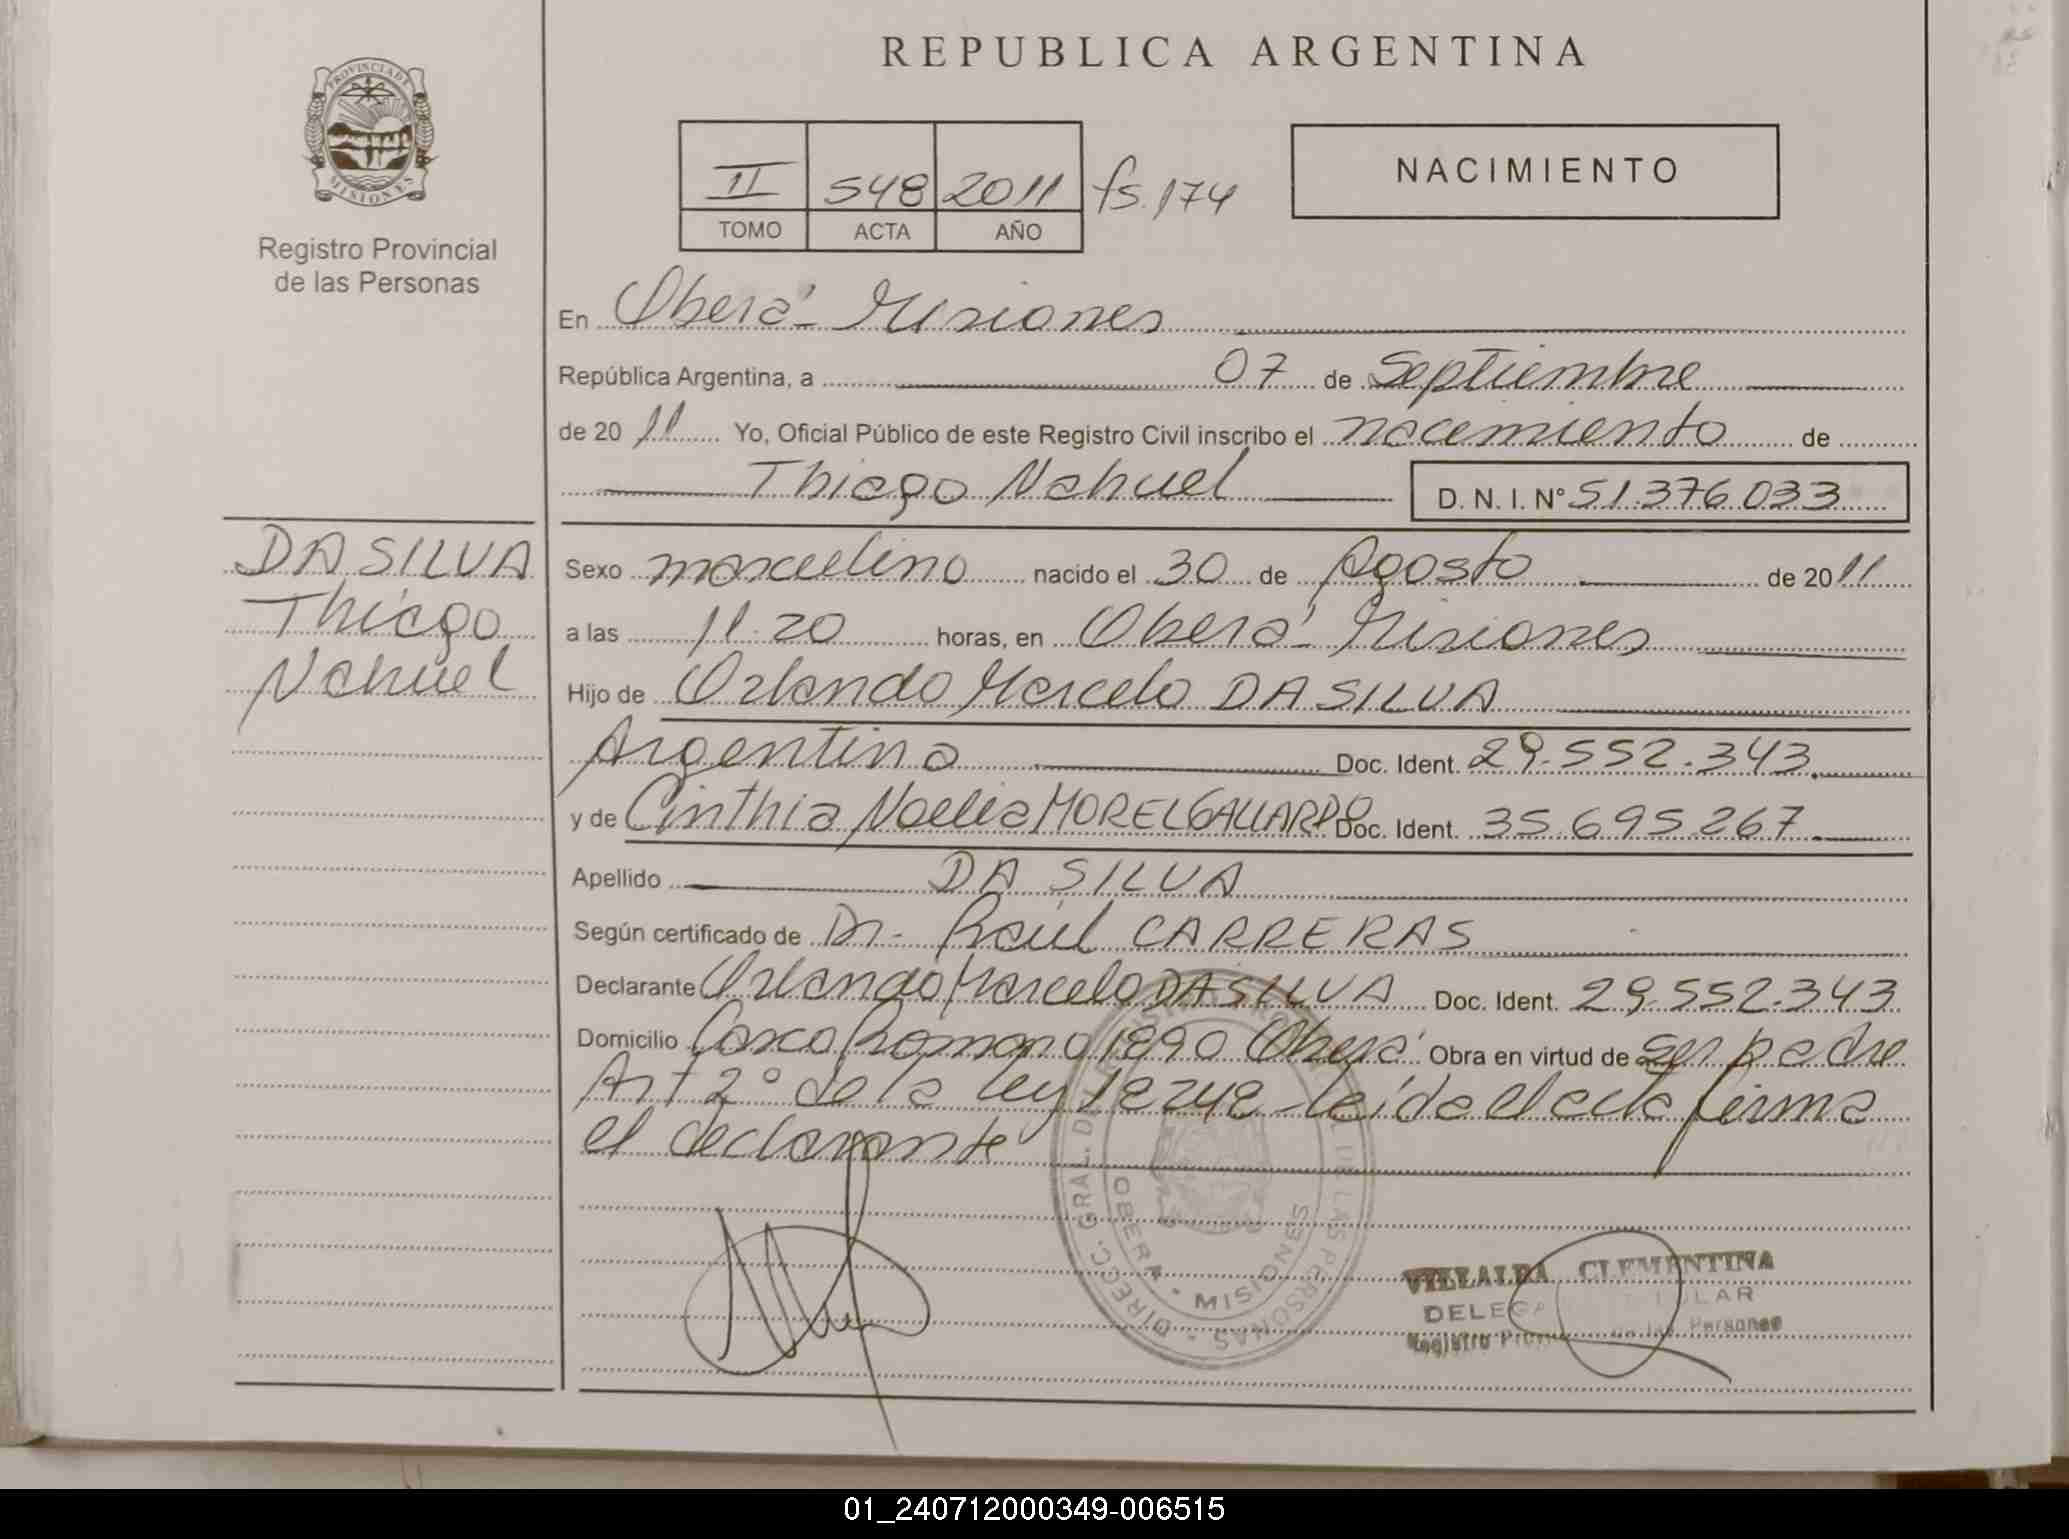 REPUBLICA ARGENTINA
PROVINCIA DE
MISIONES
Registro Provincial
de las Personas
II 548 2011 fs. 174
TOMO ACTA AÑO
NACIMIENTO
En Oberá - Misiones
República Argentina, a 07 de Septiembre
de 2011 Yo, Oficial Público de este Registro Civil inscribo el nacimiento de
Thiago Nahuel D. N. I. Nº 51.376.033
DA SILVA
Thiago
Nahuel
Sexo masculino nacido el 30 de Agosto de 2011
a las 11.20 horas, en Oberá - Misiones
Hijo de Orlando Marcelo DA SILVA
Argentino Doc. Ident. 29.552.343.
y de Cinthia Noelia MOREL GALLARDO Doc. Ident. 35.695.267.
Apellido DA SILVA
Según certificado de Dr. Raúl CARRERAS
Declarante Orlando Marcelo DA SILVA Doc. Ident. 29.552.343
Domicilio Romano 1890 Oberá Obra en virtud de ser padre
Art 2º de la ley 18248 - leída el acta firma
el declarante
DIRECC. GRAL. DEL REGISTRO PROVINCIAL DE LAS PERSONAS
OBERA • MISIONES
VILLALBA CLEMENTINA
01_240712000349-006515